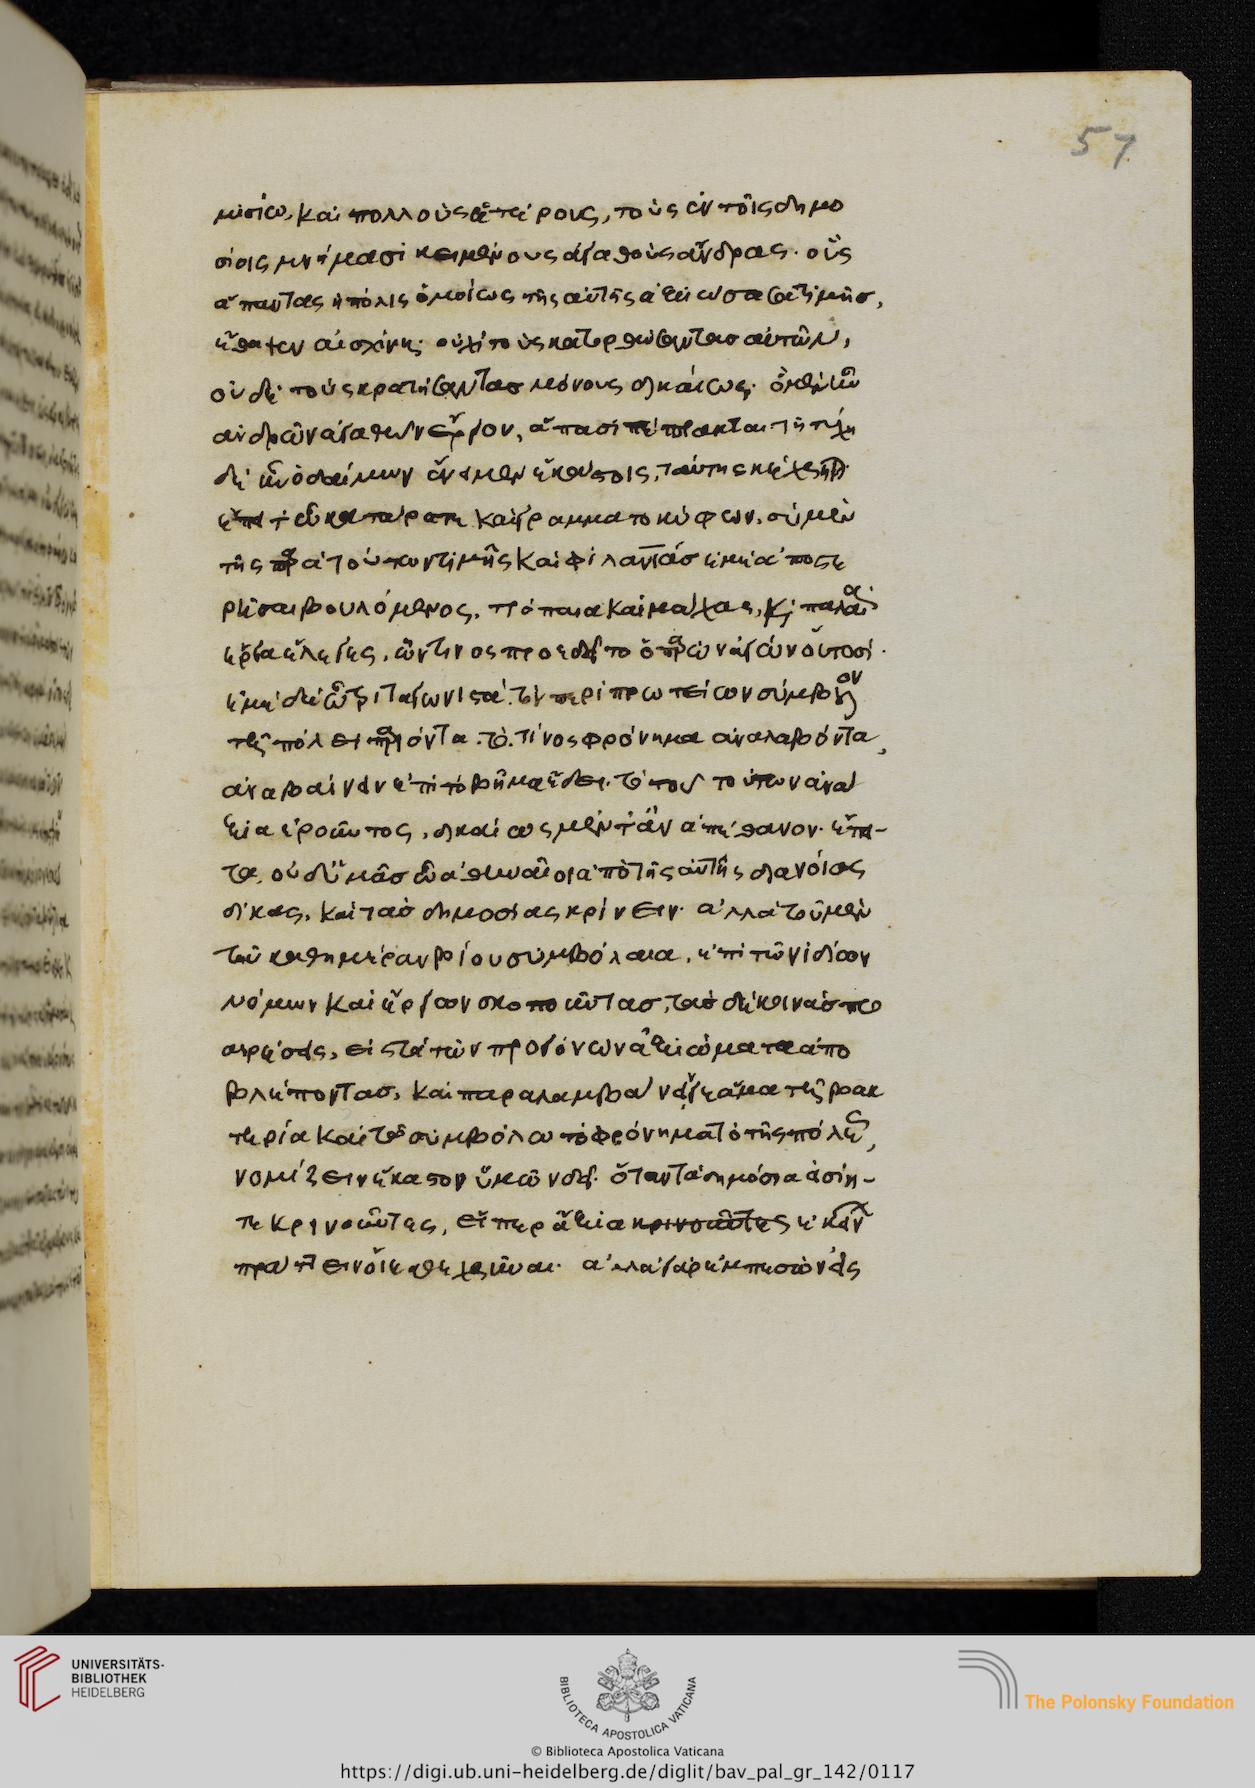 57
μισίω, καὶ πολλοὺς ἑτέρους, τοὺς ἐν τοῖς δημο
σίοις μνήμασι κειμένους ἀγαθοὺς ἄνδρας· οὓς
ἅπαντας ἡ πόλις ὁμοίως τῆς αὐτῆς ἀξιώσασα τιμῆς,
ἔθαψεν αἰσχίνη· οὐχὶ τοὺς κατορθώσαντας αὐτῶν,
οὐδὲ τοὺς κρατήσαντας μόνους δικαίως· ὃ μὲν ἦν
ἀνδρῶν ἀγαθῶν ἔργον, ἅπασι πέπρακται· τῇ τύχῃ
δὲ ἣν ὁ δαίμων ἔνειμεν ἑκάστοις, ταύτης κέχρηνται·
ἔπειτ' ὦ κατάρατε καὶ γραμματοκύφων, σὺ μὲν
τῆς παρὰ τουτωνὶ τιμῆς καὶ φιλανθρωπίας ἐμὲ ἀποστε
ρῆσαι βουλόμενος, τρόπαια καὶ μάχας, καὶ παλαιὰ
ἔργα ἔλεγες, ὧν τίνος προσεδεῖτο ὁ παρὼν ἀγὼν οὑτοσί·
ἐμὲ δὲ ὦ τριταγωνιστὰ τὸν περὶ πρωτείων σύμβουλον
τῇ πόλει παριόντα. τὸ τίνος φρόνημα ἀναλαβόντα,
ἀναβαίνειν ἐπὶ τὸ βῆμα ἔδει. τὸ τοῦ τούτων ἀνά
ξια ἐροῦντος, δικαίως μέντἂν ἀπέθανον· ἔπει-
τα, οὐδ' ὑμᾶς ὦ ἀθηναῖοι ἀπὸ τῆς αὐτῆς διανοίας
δίκας, καὶ τὰς δημοσίας κρίνειν· ἀλλὰ τὰ μὲν
τοῦ καθημέραν βίου συμβόλαια, ἐπὶ τῶν ἰδίων
νόμων καὶ ἔργων σκοποῦντας, τὰς δὲ κοινὰς προ
αιρέσεις, εἰς τὰ τῶν προγόνων ἀξιώματα ἀπο
βλέποντας, καὶ παραλαμβάνειν γε ἅμα τῇ βακ
τηρία καὶ τῷ συμβόλω τὸ φρόνημα τὸ τῆς πόλεως,
νομίζειν ἕκαστον ὑμῶν δεῖ· ὅταν τὰ δημόσια εἰσίη-
τε κρινοῦντες, εἴπερ ἄξια κρινοῦντες ἐκείνων
πράττειν οἴεσθε χρῆναι· ἀλλὰ γὰρ ἐμπεσὼν εἰς
UNIVERSITÄTS-
BIBLIOTHEK
HEIDELBERG
BIBLIOTECA APOSTOLICA VATICANA
© Biblioteca Apostolica Vaticana
The Polonsky Foundation
https://digi.ub.uni-heidelberg.de/diglit/bav_pal_gr_142/0117